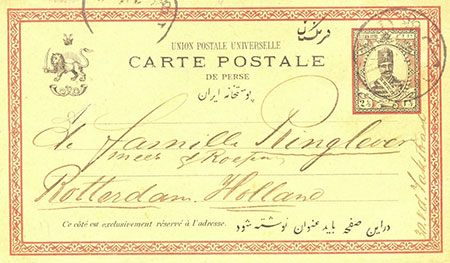 فرنگستان
UNION POSTALE UNIVERSELLE
CARTE POSTALE
DE PERSE
پوستخانه ایران
2½
de Famille Ringlever
Rotterdam Holland
Ce côté est exclusivement réservé à l'adresse.
دراین صفحه باید عنوان نوشته شود